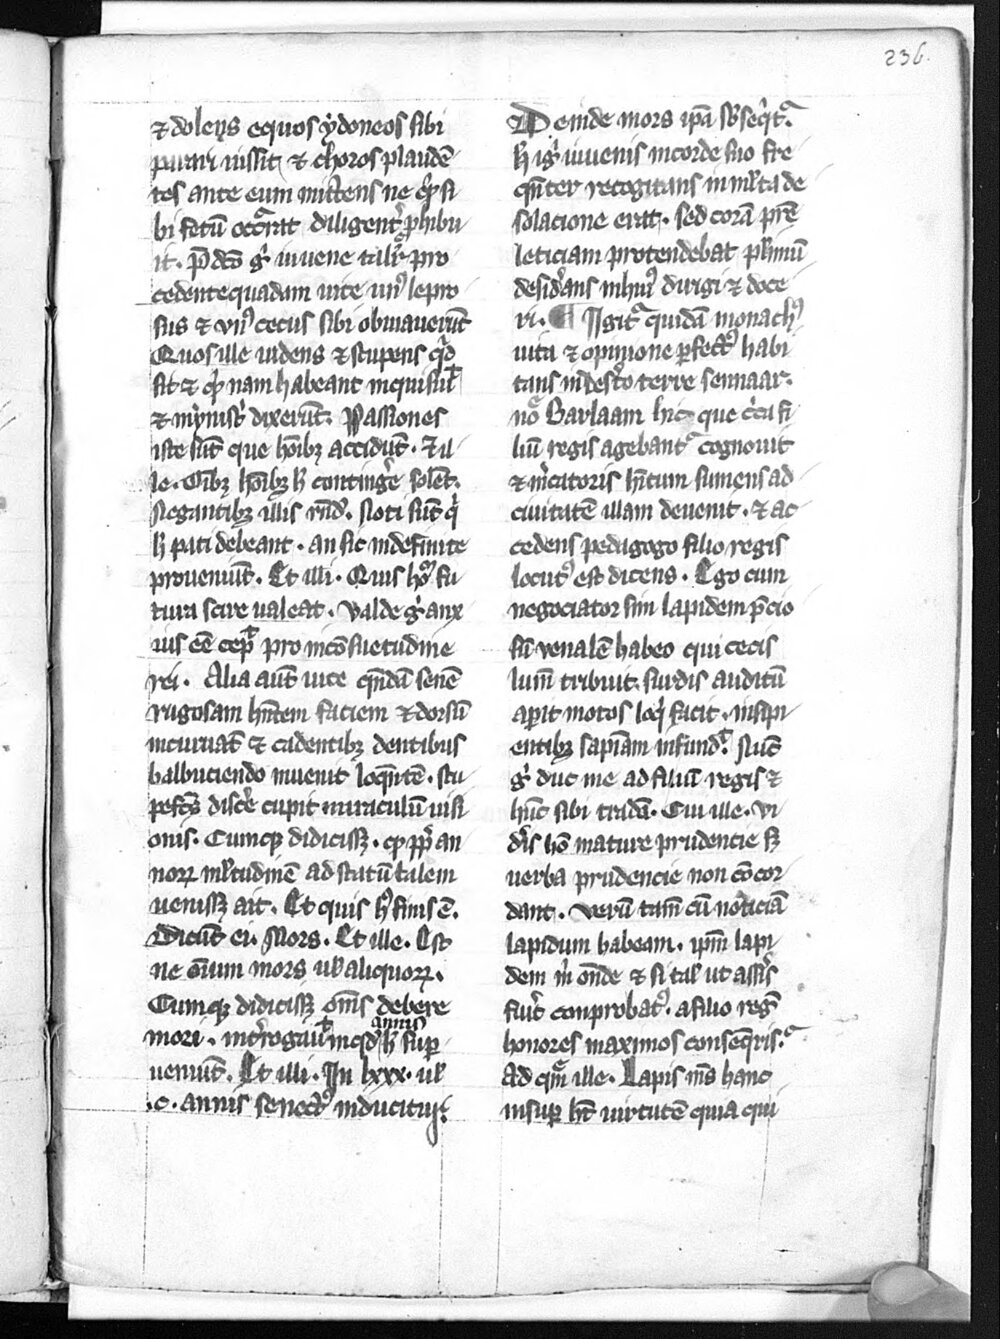 236.
⁊ dolens equos ydoneos sibi
parari iussit ⁊ choros plaudē
tes ante eum mittens ne qͥp si
bi fetū occ̄rat diligent᷑ ꝓhibu
it. p̄dcō gͥ iuuene talit᷑ pro
cedente quadam uice unꝰ lepro
sus ⁊ vnꝰ cecus sibi obuiauerūt
Quos ille uidens ⁊ stupens qͥd
sit ⁊ qͥ nam habeant inquisiuͭ
⁊ mynistͥ dixerūt. Passiones
iste sūt que hoībꝫ accidūt. Et il
le. Oībꝫ hoībꝫ h̄ contingͤe solēt.
Negantibꝫ illis rn̄d᷑. Noti sūt qͥ
h̄ pati debeant. an sic indefinite
proueniūt. Et illi. Quis hoꝝ fu
tura scire ualeat. Valde gͥ anx
ius eē cepͭ pro incōsuetudine
rei. Alia aūt uice qͤndā senē
rugosam hn̄tem faciem ⁊ dorsū
incuruat̄ ⁊ cadentibꝫ dentibus
balbuciendo inuenit loqn̄tē. stu
pefcūs discͤe cupit miraculū uisi
onis. Cumqꝫ didicissꝫ. qͥ ꝓpt̄ an
norꝝ ml̄tudinē ad statū talem
uenissꝫ ait. Et quis hͥ finis ē.
Dicūt ei. Mors. Et ille. Est
ne om̄ium mors ul̄ aliquorꝝ.
Cumqꝫ didicissꝫ om̄s debere
mori. int᷑rogauiͭ in qͦt annis h̄ suꝑ
ueniūt. Et illi. In lxxx. ul̄
.c. annis senectꝰ inducitur.
Deinde mors ip̄a sb̄seqͥt᷑.
h̄ igͥ iuuenis in corde suo fre
qn̄ter recogitans in ml̄ta de
solacione erat. sed corā pr̄e
leticiam protendebat plīmū
desidͤans in hꝰ dirigi ⁊ doce
ri. ¶ Igit᷑ quidā monachꝰ
uita ⁊ opinione ꝑfectꝰ habi
tans in desͤto terre sennaar.
noīe Barlaam hic que cͥca fi
liū regis agebant᷑ cognouit
⁊ mͤcatoris hītum sumens ad
ciuitatē illam deuenit. ⁊ ac
cedens pedagogo filio regis
locutꝰ est dicens. Ego cum
negociator sim lapidem p̄cio
sū venalē habeo qui cecis
lum̄ tribuit. surdis auditū
aꝑit motos loqͥ facit. insipi
entibꝫ sapīam infundͭ. Nūc
gͥ duc me ad filiū regis ⁊
hūc sibi tradā. Cui ille. Vi
dͤis hō mature prudencie sꝫ
uerba prudencie non cōcor
dant. Verū tam̄ cū noticiā
lapidum habeam. ip̄m lapi
dem mͥ on̄de ⁊ si tal̄ ut assͥs
fuͤit comprobatꝰ. a filio reḡ
honores maximos conseq̄ris.
Ad qm̄ ille. Lapis m̄s hanc
insuꝑ hꝫ uirtutē quia qui